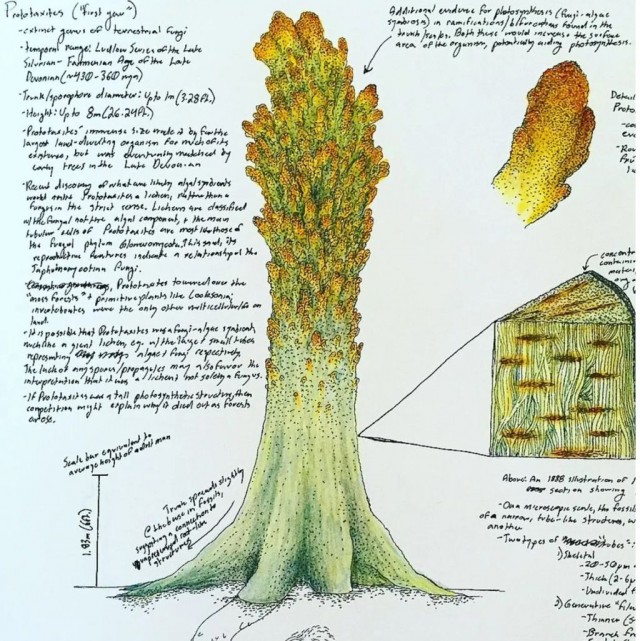 Prototaxites ("first yew")
-extinct genus of terrestrial fungi
-temporal range: Ludlow Series of the Late
Silurian - Famennian Age of the Late
Devonian (~430-360 mya)
-Trunk/sporophore diameter: up to 1m (3.28ft.)
-Height: Up to 8m (26.24ft.)
-Prototaxites' immense size made it by far the
largest land-dwelling organism for much of its
existence, but was eventually matched by
early trees in the Late Devonian
-Recent discovery of what are likely algal symbionts
would make Prototaxites a lichen, rather than a
fungus in the strict sense. Lichens are classified
w/ the fungal not the algal component, & the main
tubular cells of Prototaxites are most like those of
the fungal phylum Glomeromycota. This said, its
reproductive features indicate a relationship to the
Taphrinomycotina fungi.
Prototaxites towered over the
"moss forests" & primitive plants like Cooksonia;
invertebrates were the only other multicellular life on
land.
-It is possible that Prototaxites was a fungi-algae symbiont,
much like a giant lichen, eg. w/ the large & small tubes
representing algae & fungi respectively.
The lack of any spores/propagules may also favor the
interpretation that it was a lichen & not solely a fungus.
-If Prototaxites was a tall photosynthetic structure, then
competition might explain why it died out as forests
arose.
Additional evidence for photosynthesis (fungi-algae
symbiosis) in ramifications/bifurcations found in the
trunk/ Both these would increase the surface
area of the organism, potentially aiding photosynthesis.
Detail
Proto
concentr
containi
Scale bar equivalent to
average height of adult man
1.83m (6ft.)
Trunk spreads slightly
@ the base in fossils,
suggesting a connection to
unpreserved root-like
structures
Above: An 1888 illustration of
section showing
-On a microscopic scale, the fossils
of a narrow, tube-like structures,
another
-Two types of tubes":
1) Skeletal
-20-50μm
-Thick (2-6μ
-Undivided
2) Generative "fil
-Thinner (5
-Branch fr